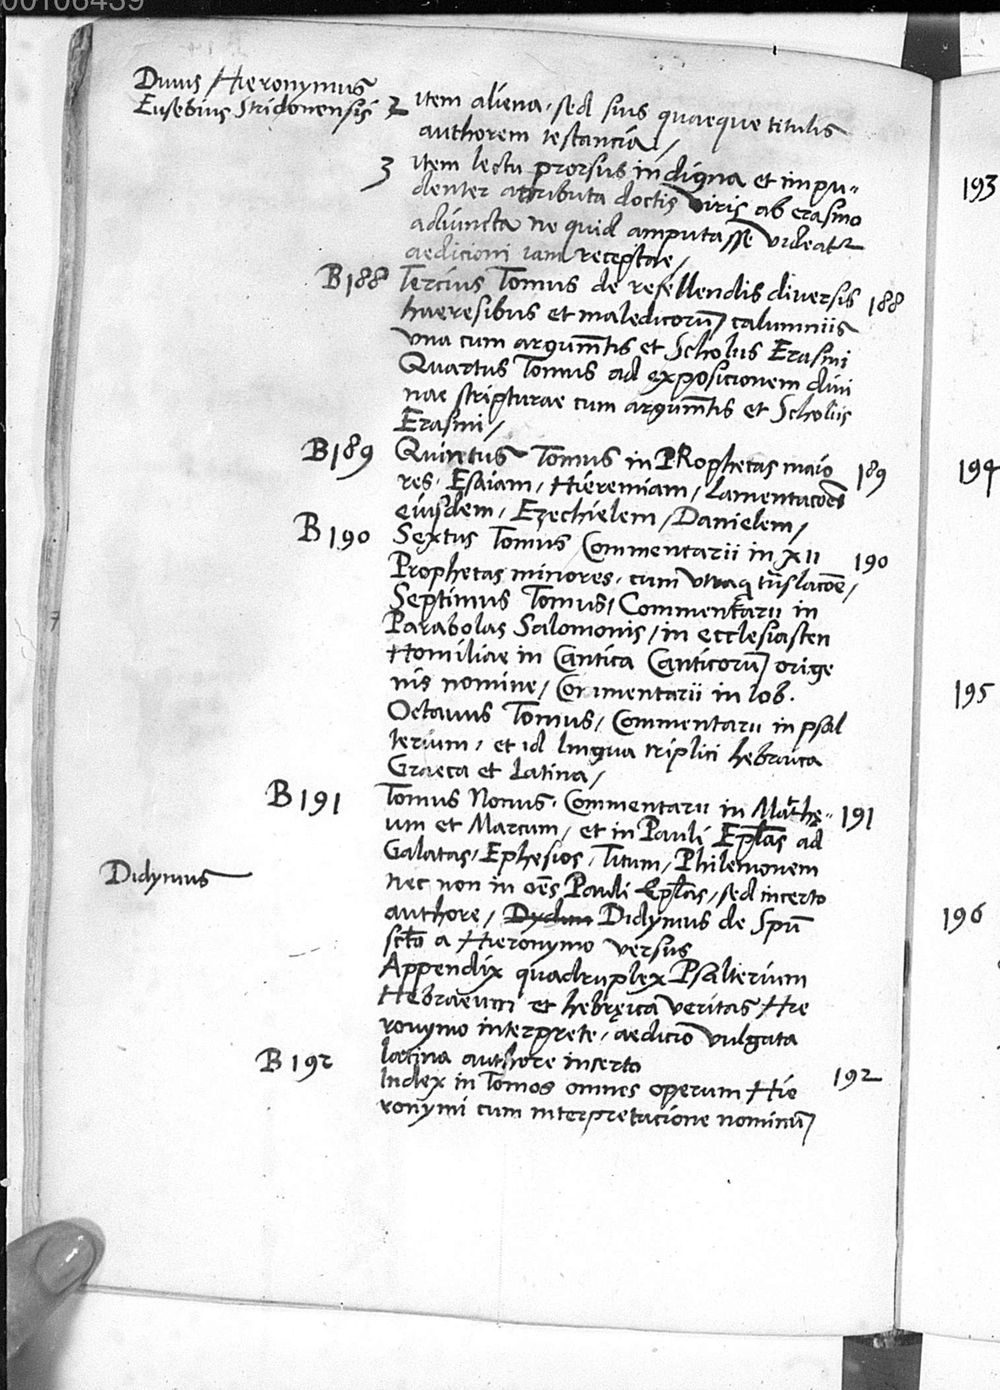 00106439
Diuus Hieronymus
Eusebius Stridonensis
2 item aliena, sed suis quaeque titulis
authorem testancia/
3 item lectu prorsus indigna et impu„
denter attributa doctis viris ab erasmo
adiuncta ne quid amputasse videatr
aedicioni iam receptae/
B188 Tercius Tomus de refellendis diversis 188
haeresibus et maledicorũ calumniis
vna cum argumẽtis et Scholiis Erasmi
Quartus Tomus ad exposicionem diui
nae scripturae cum argumẽtis et Scholiis
Erasmi/
B189 Quintus Tomus in PRophetas maio 189
res, Esaiam, Hieremiam, Lamentacoēs
eiusdem, Ezechielem, Danielem/
B190 Sextus Tomus Commentarii in XII 190
Prophetas minores, cum vtraq trãslacoẽ/
Septimus Tomus, Commentarii in
Parabolas Salomonis, in ecclesiasten
Homiliae in Cantica Canticorũ orige
nis nomine, Commentarii in Iob.
Octauus Tomus, Commentarii in psal
terium, et id lingua triplici hebraica
Graeca et Latina/
B191 Tomus Nonus, Commentarii in Mathę„ 191
um et Marcum, et in Pauli Eplãs ad
Galatas, Ephesios, Titum, Philemonem
nec non in oẽs Pauli Eplãs, sed incerto
Didymus
authore, Dydim Didymus de Spũ
sctõ a Hieronymo versus
Appendix quadruplex Psalterium
Hebraeum et hebręica veritas Hie
ronymo interprete, aedicio vulgata
latina authore incerto
B192 Index in Tomos omnes operum Hie 192
ronymi cum interpretacione nominũ
193
194
195
196